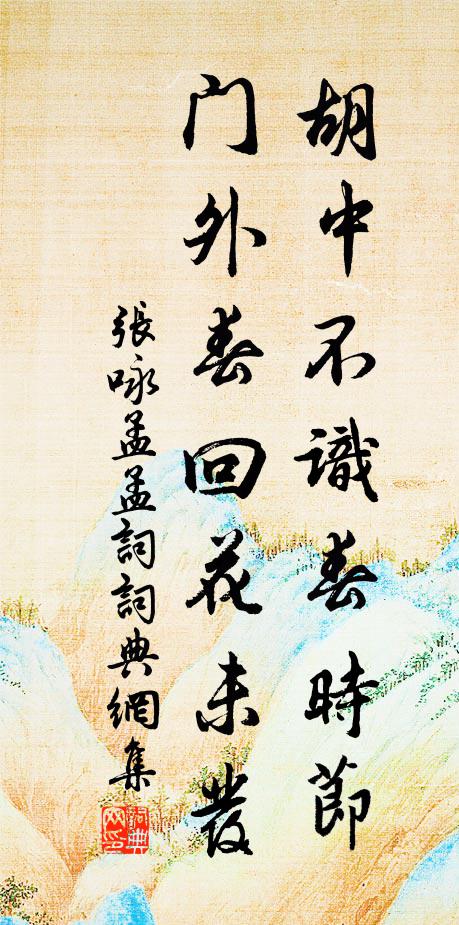 胡中不識春時節
门外春回花未發
張咏孟孟詞詞典網集
詞典